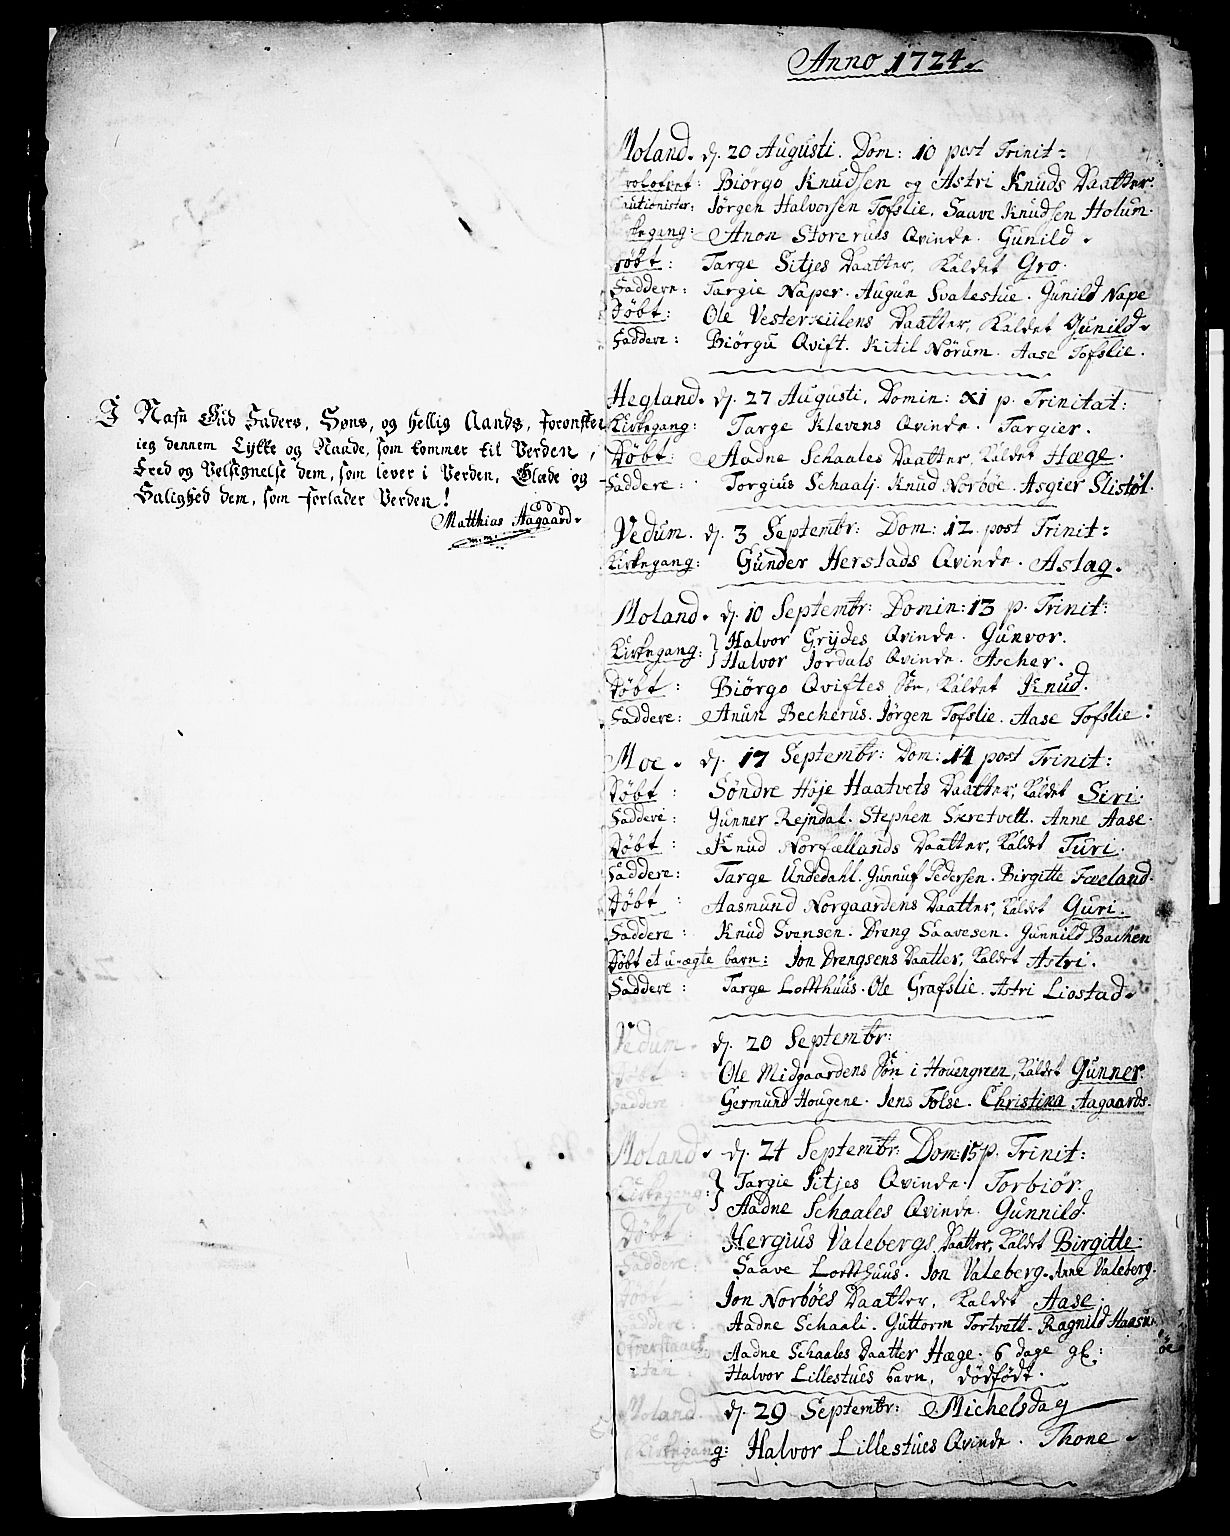 I Nafn Gud Faders, Søns, og Hellig Aands, forønsker
ieg dennem Lykke og Naade, som kommer til Verden,
Fred og Velsignelse dem, som lever i Verden, Glæde og
Salighed dem, som forlader Verden!
Matthias Aagaard.
Anno 1724.
Moland. d. 20 Augusti. Dom: 10 post Trinit:
Trolofvet: Biørgo Knudsen og Astri Knuds Daatter.
Cautionister: Jørgen Halvorsen Tofslie. Saave Knudsen Holum.
Kirkegang: Anon Storerues Qvinde. Gunild.
Døbt: Targe Sitjes Daatter, kaldet Gro.
Faddere: Targie Naper. Augun Svalestue. Gunild Nape
Døbt: Ole Vesterkiilens Daatter, kaldet Gunild.
Faddere: Biørgu Qvift. Kitil Nørum. Aase Tofslie.
Hegland. d. 27 Augusti, Domin: XI p. Trinitat:
Kirkegang: Targe Klevens Qvinde. Targier.
Døbt: Aadne Schaales Daatter, kaldet Hæge.
Faddere: Torgius Schaalj. Knud Norbøe. Asgier Slistøl.
Vedum. d. 3 Septembr: Dom: 12 post Trinit:
Kirkegang: Gunder Herstads Qvinde. Aslag.
Moland. d. 10 Septembr: Domin: 13 p. Trinit:
Kirkegang: } Halvor Grydes Qvinde. Gunvor.
Halvor Jordals Qvinde. Ascher.
Døbt: Biørgo Qviftes Søn, kaldet Knud.
Faddere: Anun Becherus. Jørgen Tofslie. Aase Tofslie:
Moe. d. 17 Septembr: Dom: 14 post Trinit:
Døbt: Søndre Høje Haatvets Daatter, kaldet Siri.
Faddere: Gunner Rejndal. Stephen Skretvett. Anne Aase.
Døbt: Knud Norfællands Daatter, kaldet Turi.
Faddere: Targe Undedahl. Gunnuf Pedersen. Birgitte Fæeland.
Døbt: Aasmund Norgaardens Daatter, kaldet Guri.
Faddere: Knud Svensen. Dreng Saavesen. Gunnild Bachen
Døbt et u-ægte barn: Jon Drengsens Daatter, kaldet Astri.
Faddere: Targe Lofthuus. Ole Grafslie. Astri Liostad.
Vedum. d. 20 Septembr:
Døbt: Ole Midgaardens Søn i Houengreen, kaldet Gunner.
Faddere: Germund Hougene. Jens Folse. Christina Aagaards.
Moland. d. 24 Septembr: Dom: 15 p. Trinit:
Kirkegang: } Targie Sitjes Qvinde. Torbiør.
Aadne Schaales Qvinde. Gunnild.
Døbt: Hergius Valebergs Daatter, kaldet Birgitte:
Faddere: Saave Lofthuus. Jon Valeberg. Anne Valeberg.
Døbt: Jon Norbøes Daatter, kaldet Aase.
Faddere: Aadne Schaali. Guttorm Tortvett. Ragnild
Aadne Schaales Daatter Hæge. 6 dage gl:
item Halvor Lillestues barn, dødfødt.
Moland d. 29 Septembr: Michelsdag
Kirkegang: Halvor Lillestues Qvinde. Thone.